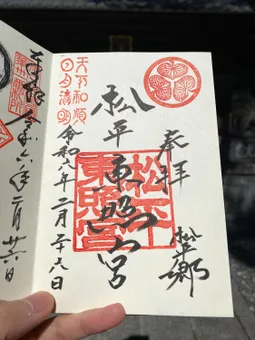 奉拝
松平郷
松平東照宮
松平
東照宮
天下和順
日月清明
令和六年二月二十六日
奉拝
令和六年二月廿六日